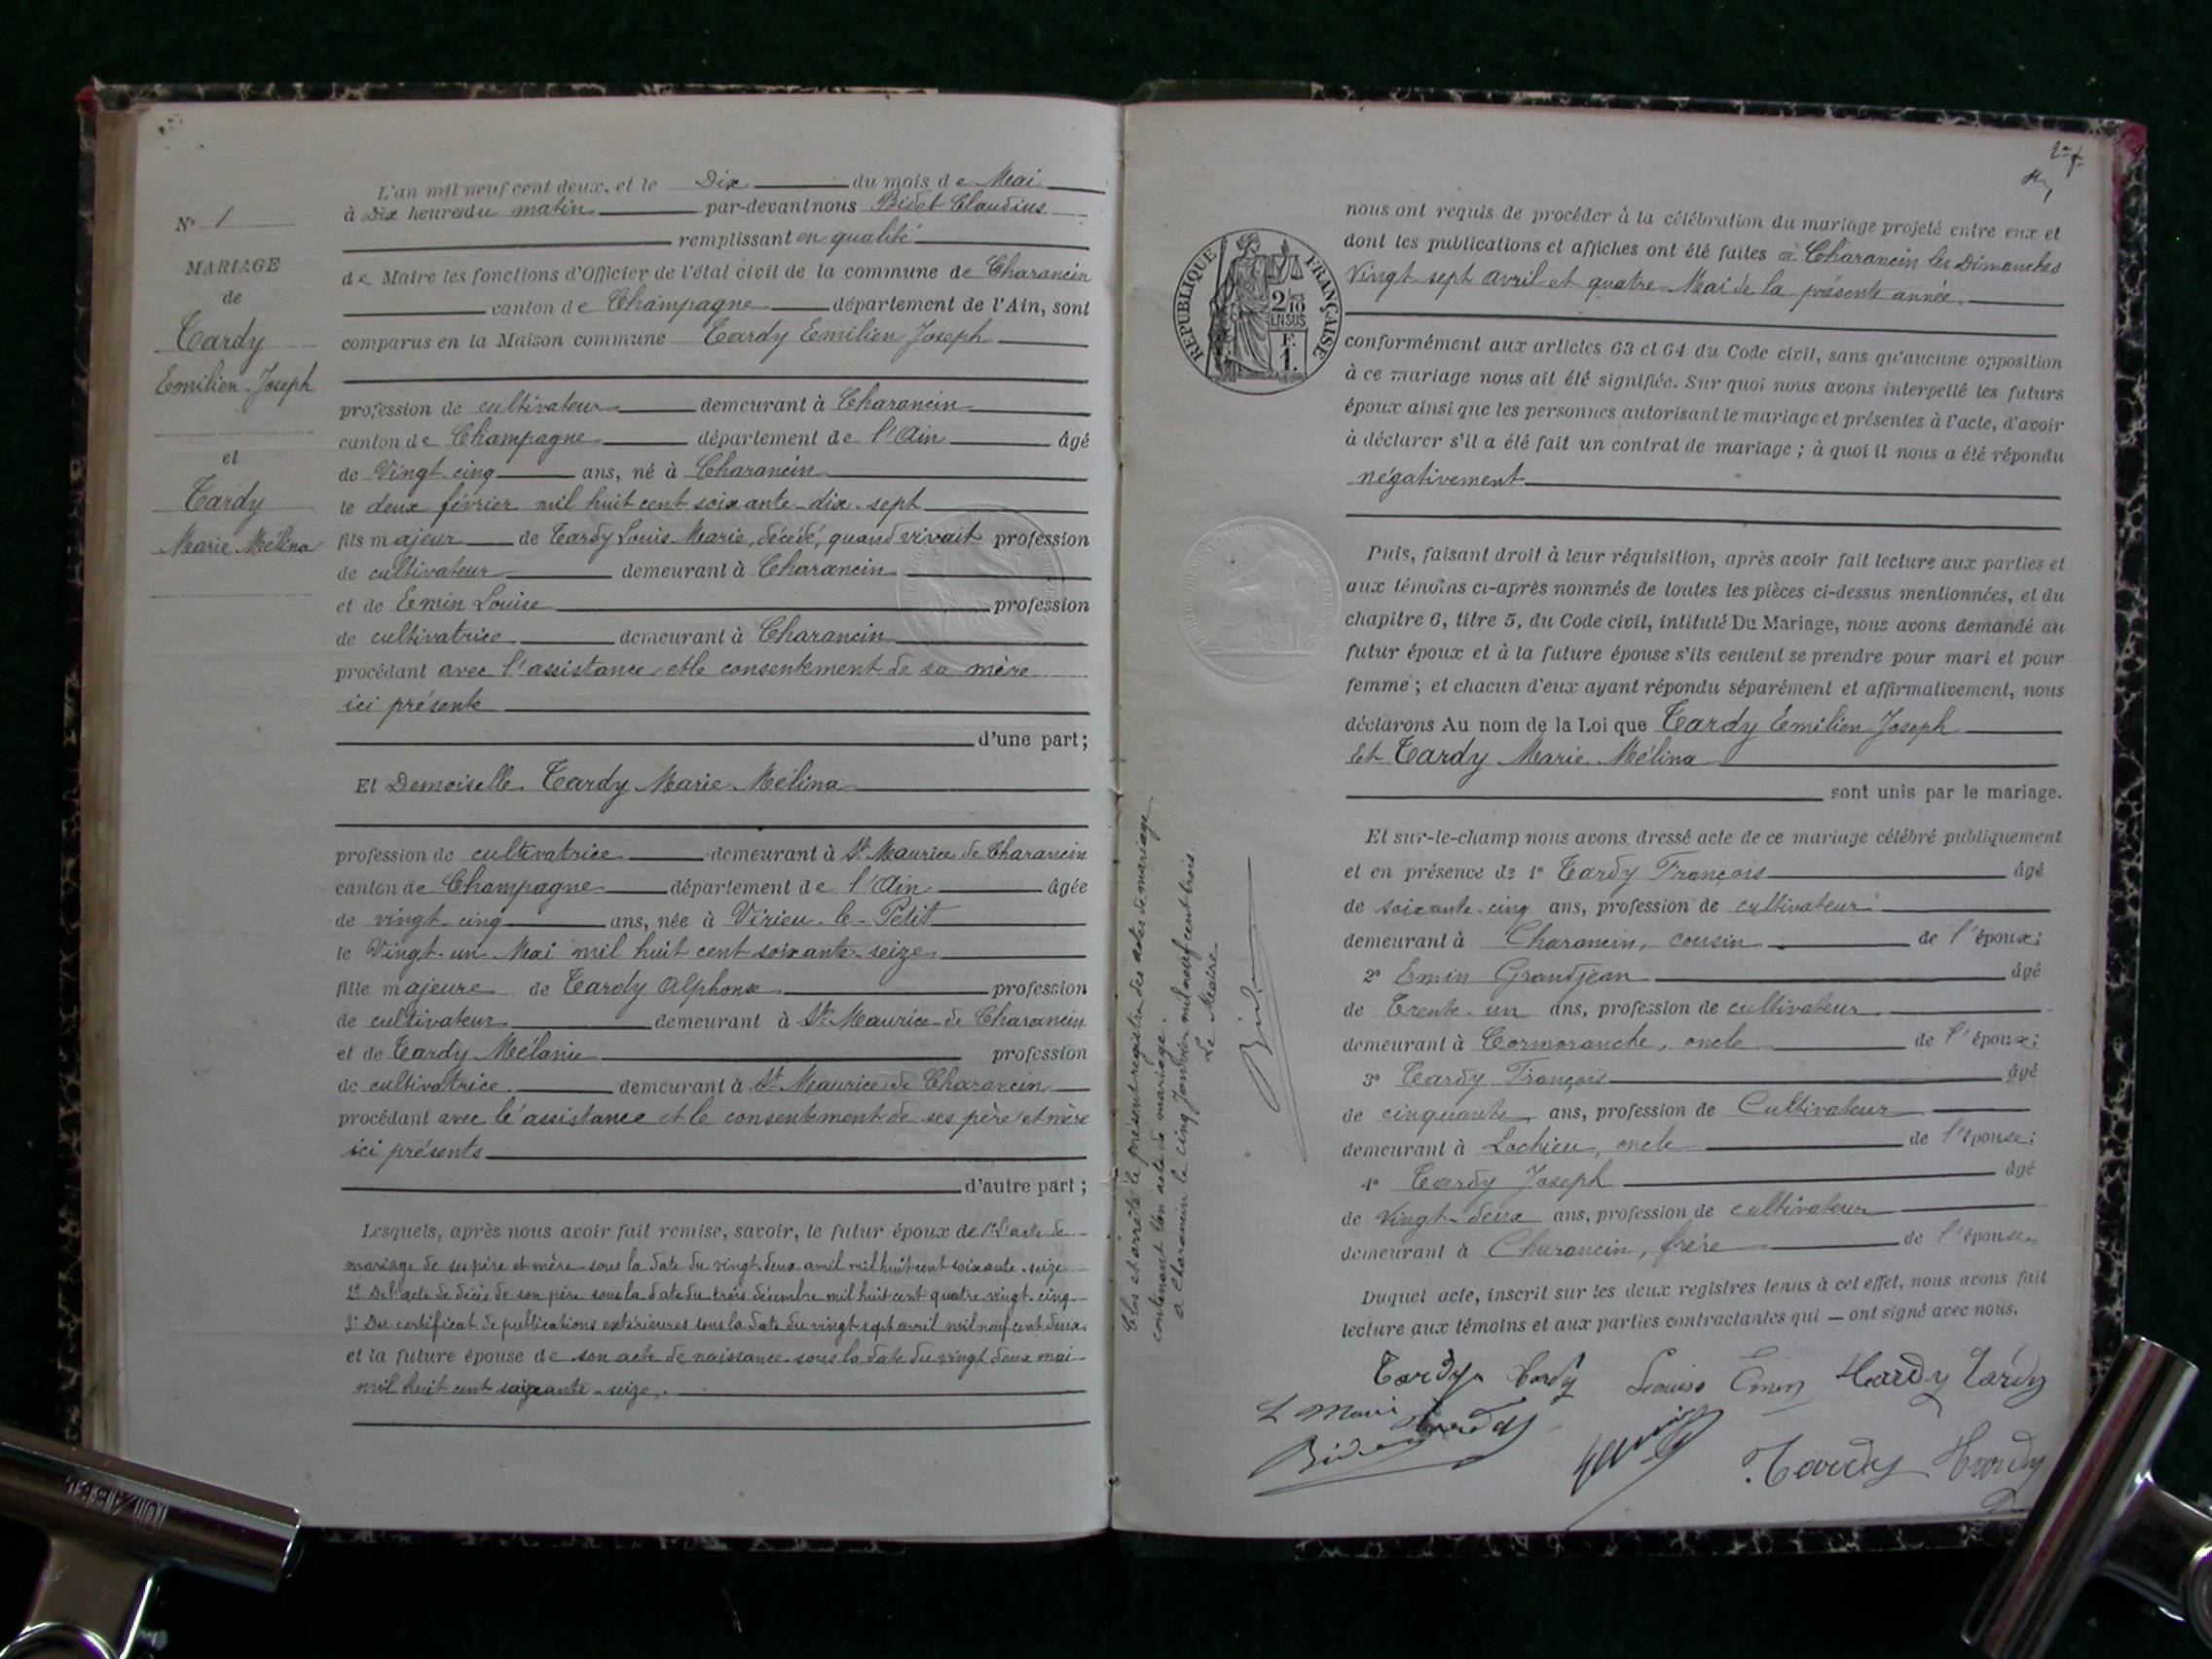 Nº 1
MARIAGE
de
Tardy
Emilien Joseph
et
Tardy
Marie Mélina
L'an mil neuf cent deux, et le Dix du mois de Mai
à Dix heures du matin par-devant nous Bidet Claudius
remplissant en qualité
de Maire les fonctions d'Officier de l'état civil de la commune de Charancin
canton de Champagne département de l'Ain, sont
comparus en la Maison commune Tardy Emilien Joseph
profession de cultivateur demeurant à Charancin
canton de Champagne département de l'Ain âgé
de Vingt cinq ans, né à Charancin
le deux février mil huit cent soixante-dix-sept
fils majeur de Tardy Louis Marie, décédé, quand vivait profession
de cultivateur demeurant à Charancin
et de Emin Louise profession
de cultivatrice demeurant à Charancin
procédant avec l'assistance et le consentement de sa mère
ici présente
d'une part;
Et Demoiselle Tardy Marie Mélina
profession de cultivatrice demeurant à St Maurice de Charancin
canton de Champagne département de l'Ain âgée
de vingt-cinq ans, née à Virieu-le-Petit
le Vingt-un Mai mil huit cent soixante-seize
fille majeure de Tardy Alphonse profession
de cultivateur demeurant à St Maurice de Charancin
et de Tardy Mélanie profession
de cultivatrice demeurant à St Maurice de Charancin
procédant avec l'assistance et le consentement de ses père et mère
ici présents
d'autre part;
Lesquels, après nous avoir fait remise, savoir, le futur époux de 1º L'acte de
mariage de ses père et mère sous la date du vingt-deux avril mil huit cent soixante-seize
2º De l'acte de décès de son père sous la date du trois décembre mil huit cent quatre-vingt-cinq
3º Du certificat de publications extérieures sous la date du vingt sept avril mil neuf cent deux.
et la future épouse de son acte de naissance sous la date du vingt deux mai
mil huit cent soixante-seize.
Clos et arrêté le présent registre des actes de mariage
contenant un acte de mariage.
A Charancin le cinq Janvier mil neuf cent trois.
Le Maire
REPUBLIQUE FRANÇAISE
2/10
EN SUS
F.
1.
nous ont requis de procéder à la célébration du mariage projeté entre eux et
dont les publications et affiches ont été faites à Charancin les Dimanches
Vingt-sept avril et quatre Mai de la présente année.
conformément aux articles 63 et 64 du Code civil, sans qu'aucune opposition
à ce mariage nous ait été signifiée. Sur quoi nous avons interpellé les futurs
époux ainsi que les personnes autorisant le mariage et présentes à l'acte, d'avoir
à déclarer s'il a été fait un contrat de mariage; à quoi il nous a été répondu
négativement
Puis, faisant droit à leur réquisition, après avoir fait lecture aux parties et
aux témoins ci-après nommés de toutes les pièces ci-dessus mentionnées, et du
chapitre 6, titre 5, du Code civil, intitulé Du Mariage, nous avons demandé au
futur époux et à la future épouse s'ils veulent se prendre pour mari et pour
femme; et chacun d'eux ayant répondu séparément et affirmativement, nous
déclarons Au nom de la Loi que Tardy Emilien Joseph
Et Tardy Marie Mélina
sont unis par le mariage.
Et sur-le-champ nous avons dressé acte de ce mariage célébré publiquement
et en présence de 1º Tardy François âgé
de soixante-cinq ans, profession de cultivateur
demeurant à Charancin, cousin de l'époux;
2º Emin Grandjean âgé
de Trente-un ans, profession de cultivateur
demeurant à Cormoranche, oncle de l'époux;
3º Tardy François âgé
de cinquante ans, profession de Cultivateur
demeurant à Lochieu, oncle de l'épouse;
4º Tardy Joseph âgé
de Vingt-deux ans, profession de cultivateur
demeurant à Charancin, frère de l'épouse.
Duquel acte, inscrit sur les deux registres tenus à cet effet, nous avons fait
lecture aux témoins et aux parties contractantes qui — ont signé avec nous.
Tardy Tardy Louise Emin Tardy Tardy
Tardy Tardy